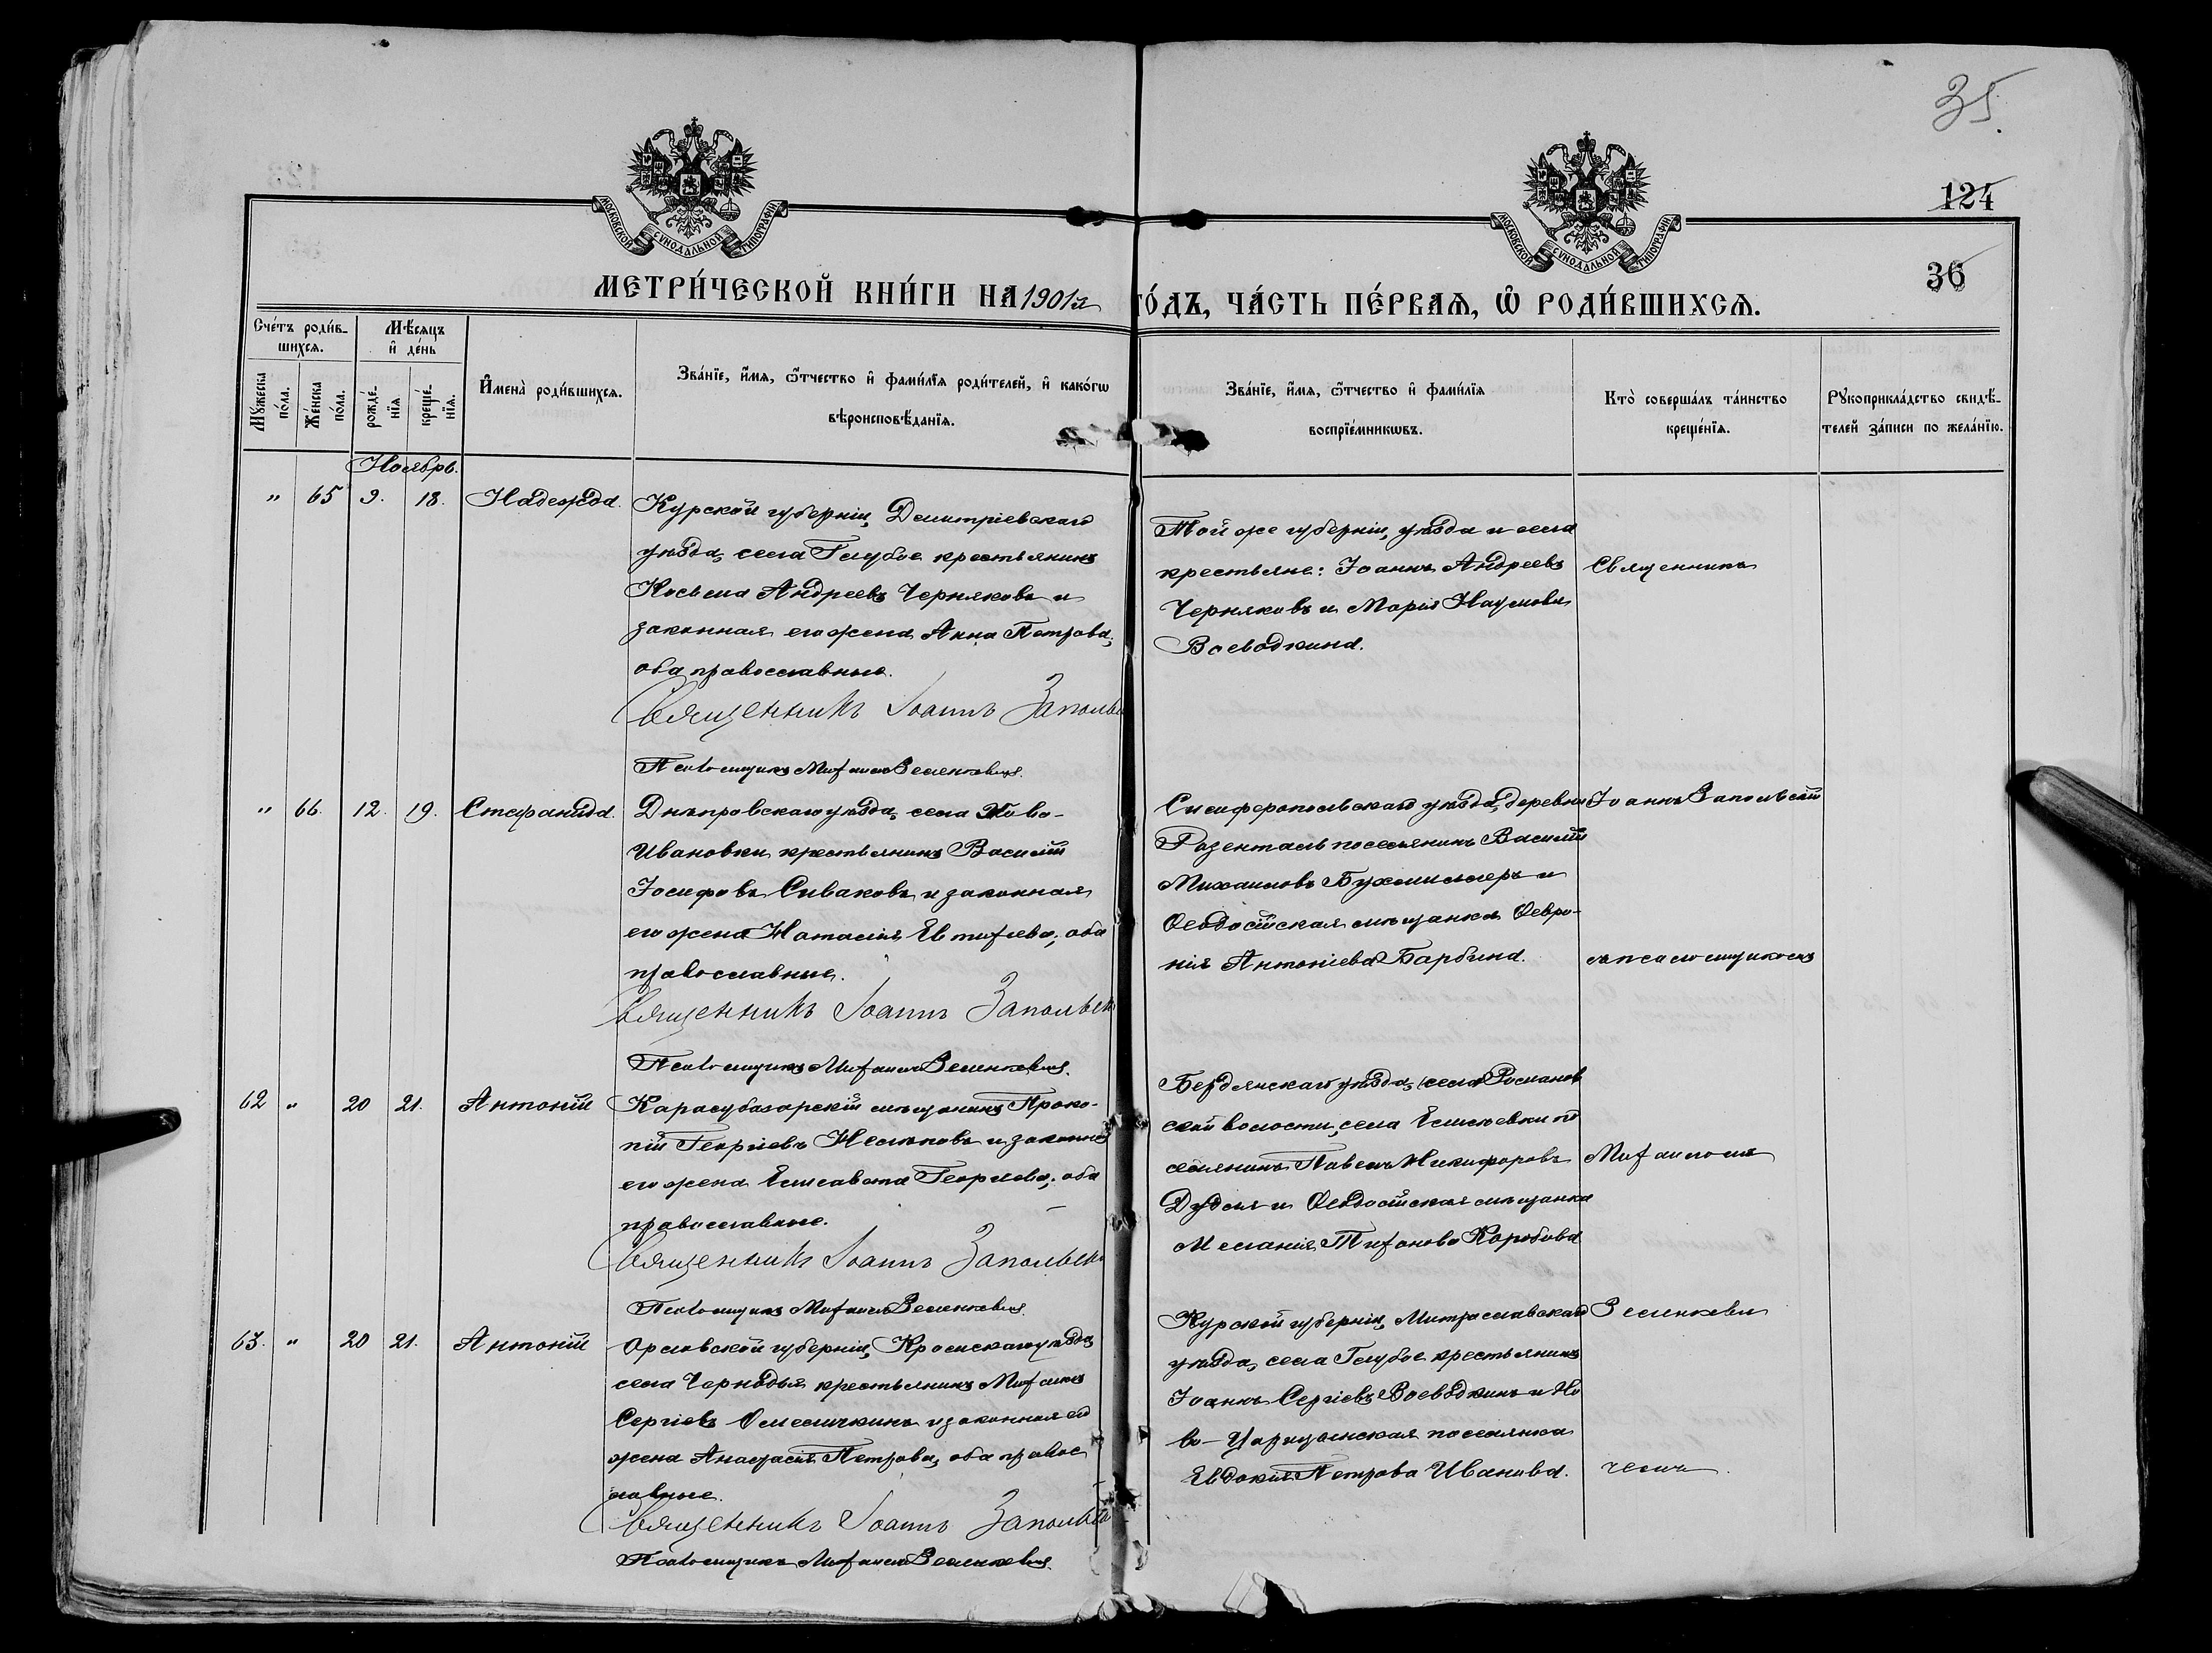 35.
124
36
МОСКОВСКОЙ СѴНОДАЛЬНОЙ ТИПОГРАФІИ
МОСКОВСКОЙ СѴНОДАЛЬНОЙ ТИПОГРАФІИ
МЕТРИ́ЧЕСКОЙ КНИ́ГИ НА 1901й
ГО́ДЪ, ЧА́СТЬ ПЕ́РВАѦ, Ѽ РОДИ́ВШИХСѦ.
Сче́тъ роди́вшихсѧ.
Мꙋ́жеска по́ла.
Же́нска по́ла.
Мѣ́сяцъ и҆ де́нь
рожде́нїѧ
креще́нїѧ.
И҆мена̀ роди́вшихсѧ.
Зва́нїе, и҆́мѧ, ѻ҆́тчество и҆ фами́лїѧ роди́телей, и҆ како́гѡ
вѣроисповѣ́данїѧ.
Зва́нїе, и҆́мѧ, ѻ҆́тчество и҆ фами́лїѧ
воспрїе́мникѡвъ.
Кто̀ соверша́лъ та́инство
креще́нїѧ.
Рꙋкоприкла́дство свидѣ́-
телей за́писи по жела́нїю.
Ноябрь.
" 65 9. 18. Надежда.
Курской губерніи, Дмитріевскаго
уѣзда, села Голубое крестьянинъ
Косьма Андреевъ Черняковъ и
законная его жена Анна Петрова,
оба православные.
Священникъ Іоаннъ Запольск
Псаломщикъ Михаилъ Зеленкевичъ.
Той же губерніи, уѣзда и села
крестьяне: Іоаннъ Андреевъ
Черняковъ и Марія Наумова
Воеводкина.
Священникъ
" 66. 12. 19. Стефанида.
Днѣпровскаго уѣзда, села Ново-
Ивановки крестьянинъ Василій
Іосифовъ Сиваковъ и законная
его жена Наталія Евтихіева, оба
православные.
Священникъ Іоаннъ Запольск
Псаломщикъ Михаилъ Зеленкевичъ.
Симферопольскаго уѣзда, деревни
Розенталь поселянинъ Василій
Михаиловъ Бухмиллеръ и
Ѳеодосійская мѣщанка Февро-
нія Антоніева Барбина.
Іоаннъ Запольскій
съ псаломщикомъ
62 " 20 21. Антоній
Карасубазарскій мѣщанинъ Проко-
пій Георгіевъ и законная
его жена Елисавета Георгіева, оба
православные.
Священникъ Іоаннъ Запольск
Псаломщикъ Михаилъ Зеленкевичъ.
Бердянскаго уѣзда, села Романов
ской волости, села по
селянинъ Павелъ Никифоровъ
и Ѳеодосійская мѣщанка
Меланія Тихонова Коробова
Михаиломъ
63. " 20 21. Антоній
Орловской губерніи, Кромскаго уѣзда
села крестьянинъ Михаилъ
Сергіевъ и законная его
жена Анастасія Петрова, оба правос
лавные.
Священникъ Іоаннъ Запольск
Псаломщикъ Михаилъ Зеленкевичъ.
Курской губерніи,
уѣзда, села Голубое крестьянинъ
Іоаннъ Сергіевъ Воеводкинъ и Но
во-Царицынская поселянка
Евдокія Петрова Иванова.
Зеленкеви
чемъ.